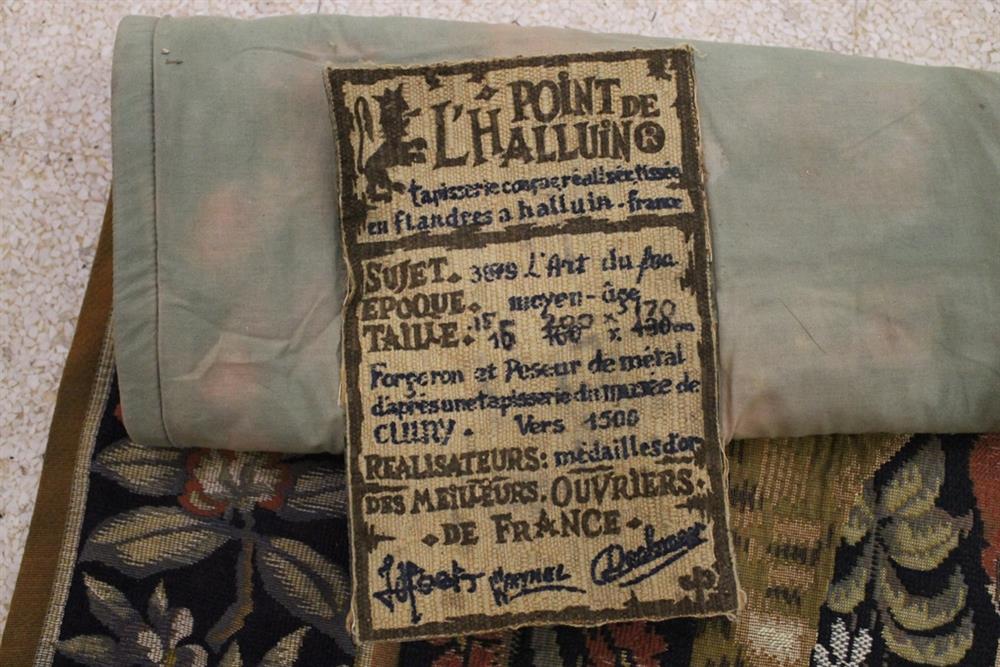 POINT DE
L'HALLUIN®
tapisserie conçue, réalisée, tissée
en flandres a halluin - france
SUJET. 3879 L'Art du feu
EPOQUE. moyen-âge
TAILLE. 200 x 170
Forgeron et Poseur de métal
d'après une tapisserie du musée de
CLUNY. Vers 1500
REALISATEURS: médailles d'or
DES MEILLEURS. OUVRIERS.
DE FRANCE